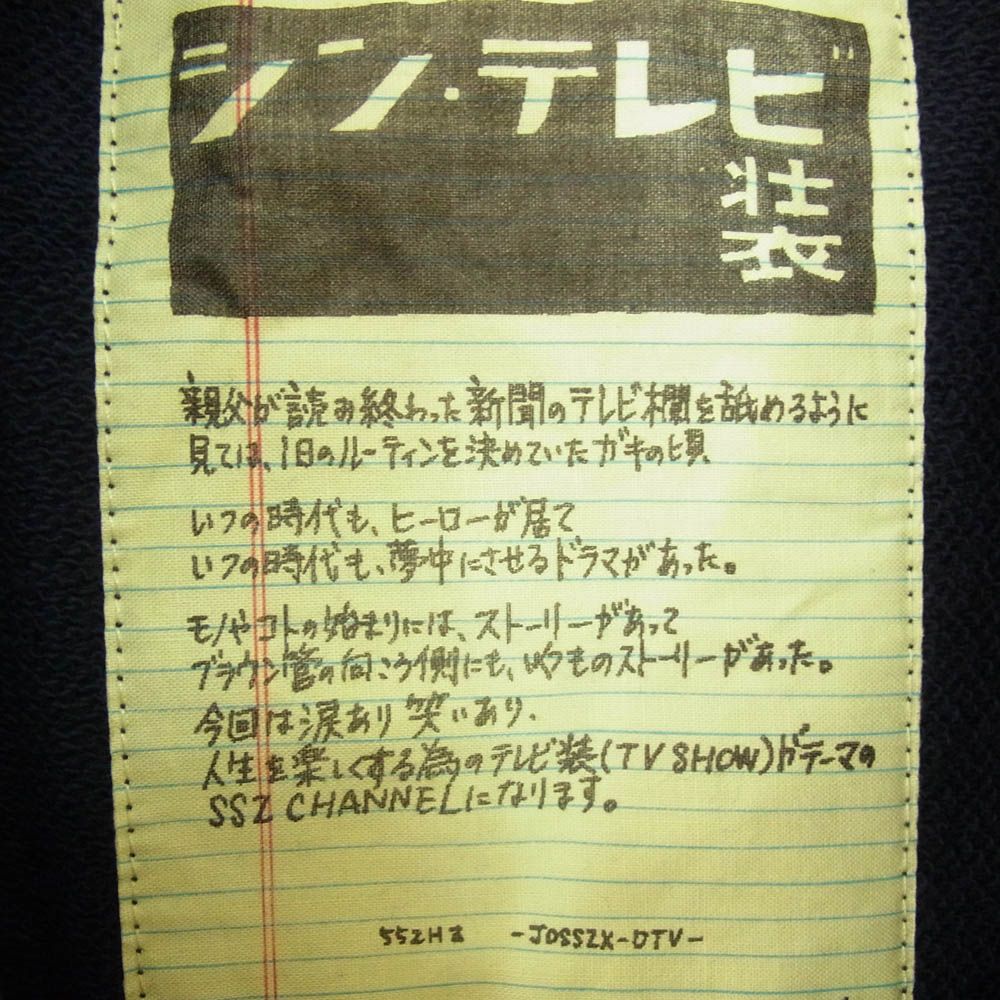 シン・テレビ
壮
衣
親父が読み終わった新聞のテレビ欄を舐めるように
見ては、1日のルーティンを決めていたガキの頃、
いつの時代も、ヒーローが居て
いつの時代も、夢中にさせるドラマがあった。
モノやコトの始まりには、ストーリーがあって
ブラウン管の向こう側にも、いくつものストーリーがあった。
今回は涙あり笑いあり、
人生を楽しくする為のテレビ装(TV SHOW)がテーマの
SSZ CHANNELになります。
55ZHz -JOSSZX-DTV-